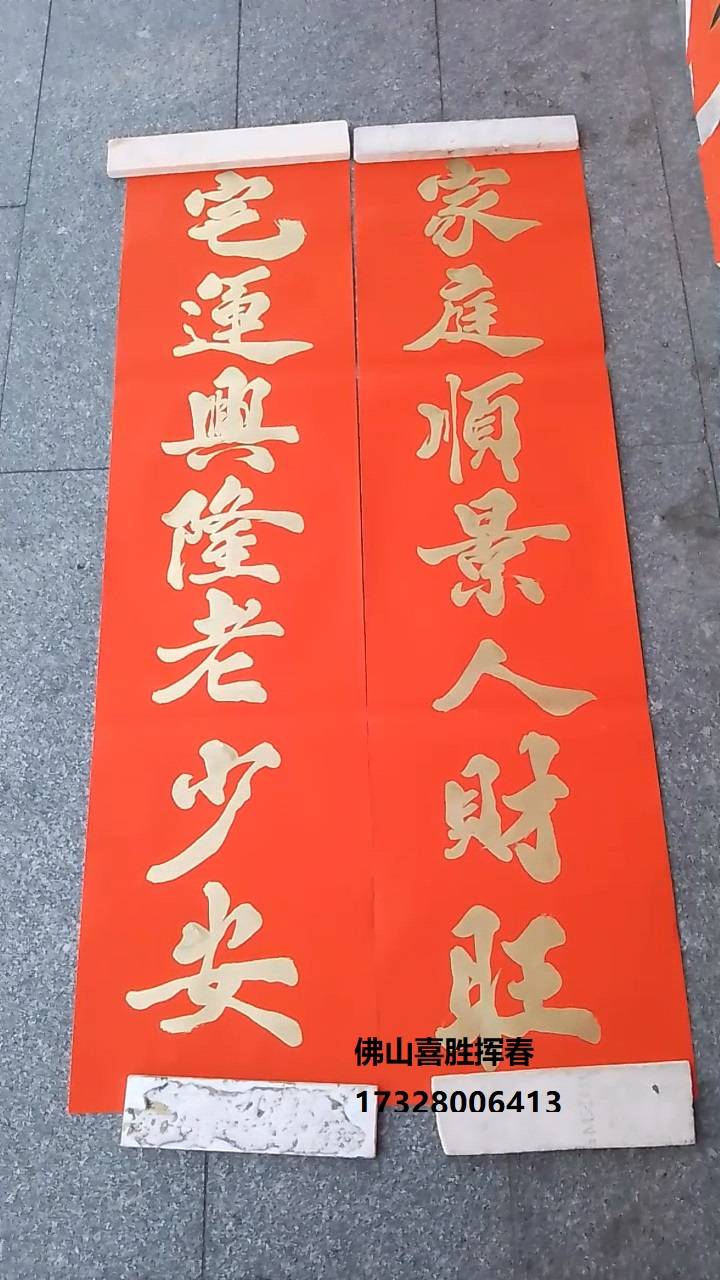 家庭順景人財旺
宅運興隆老少安
佛山喜胜挥春
17328006413